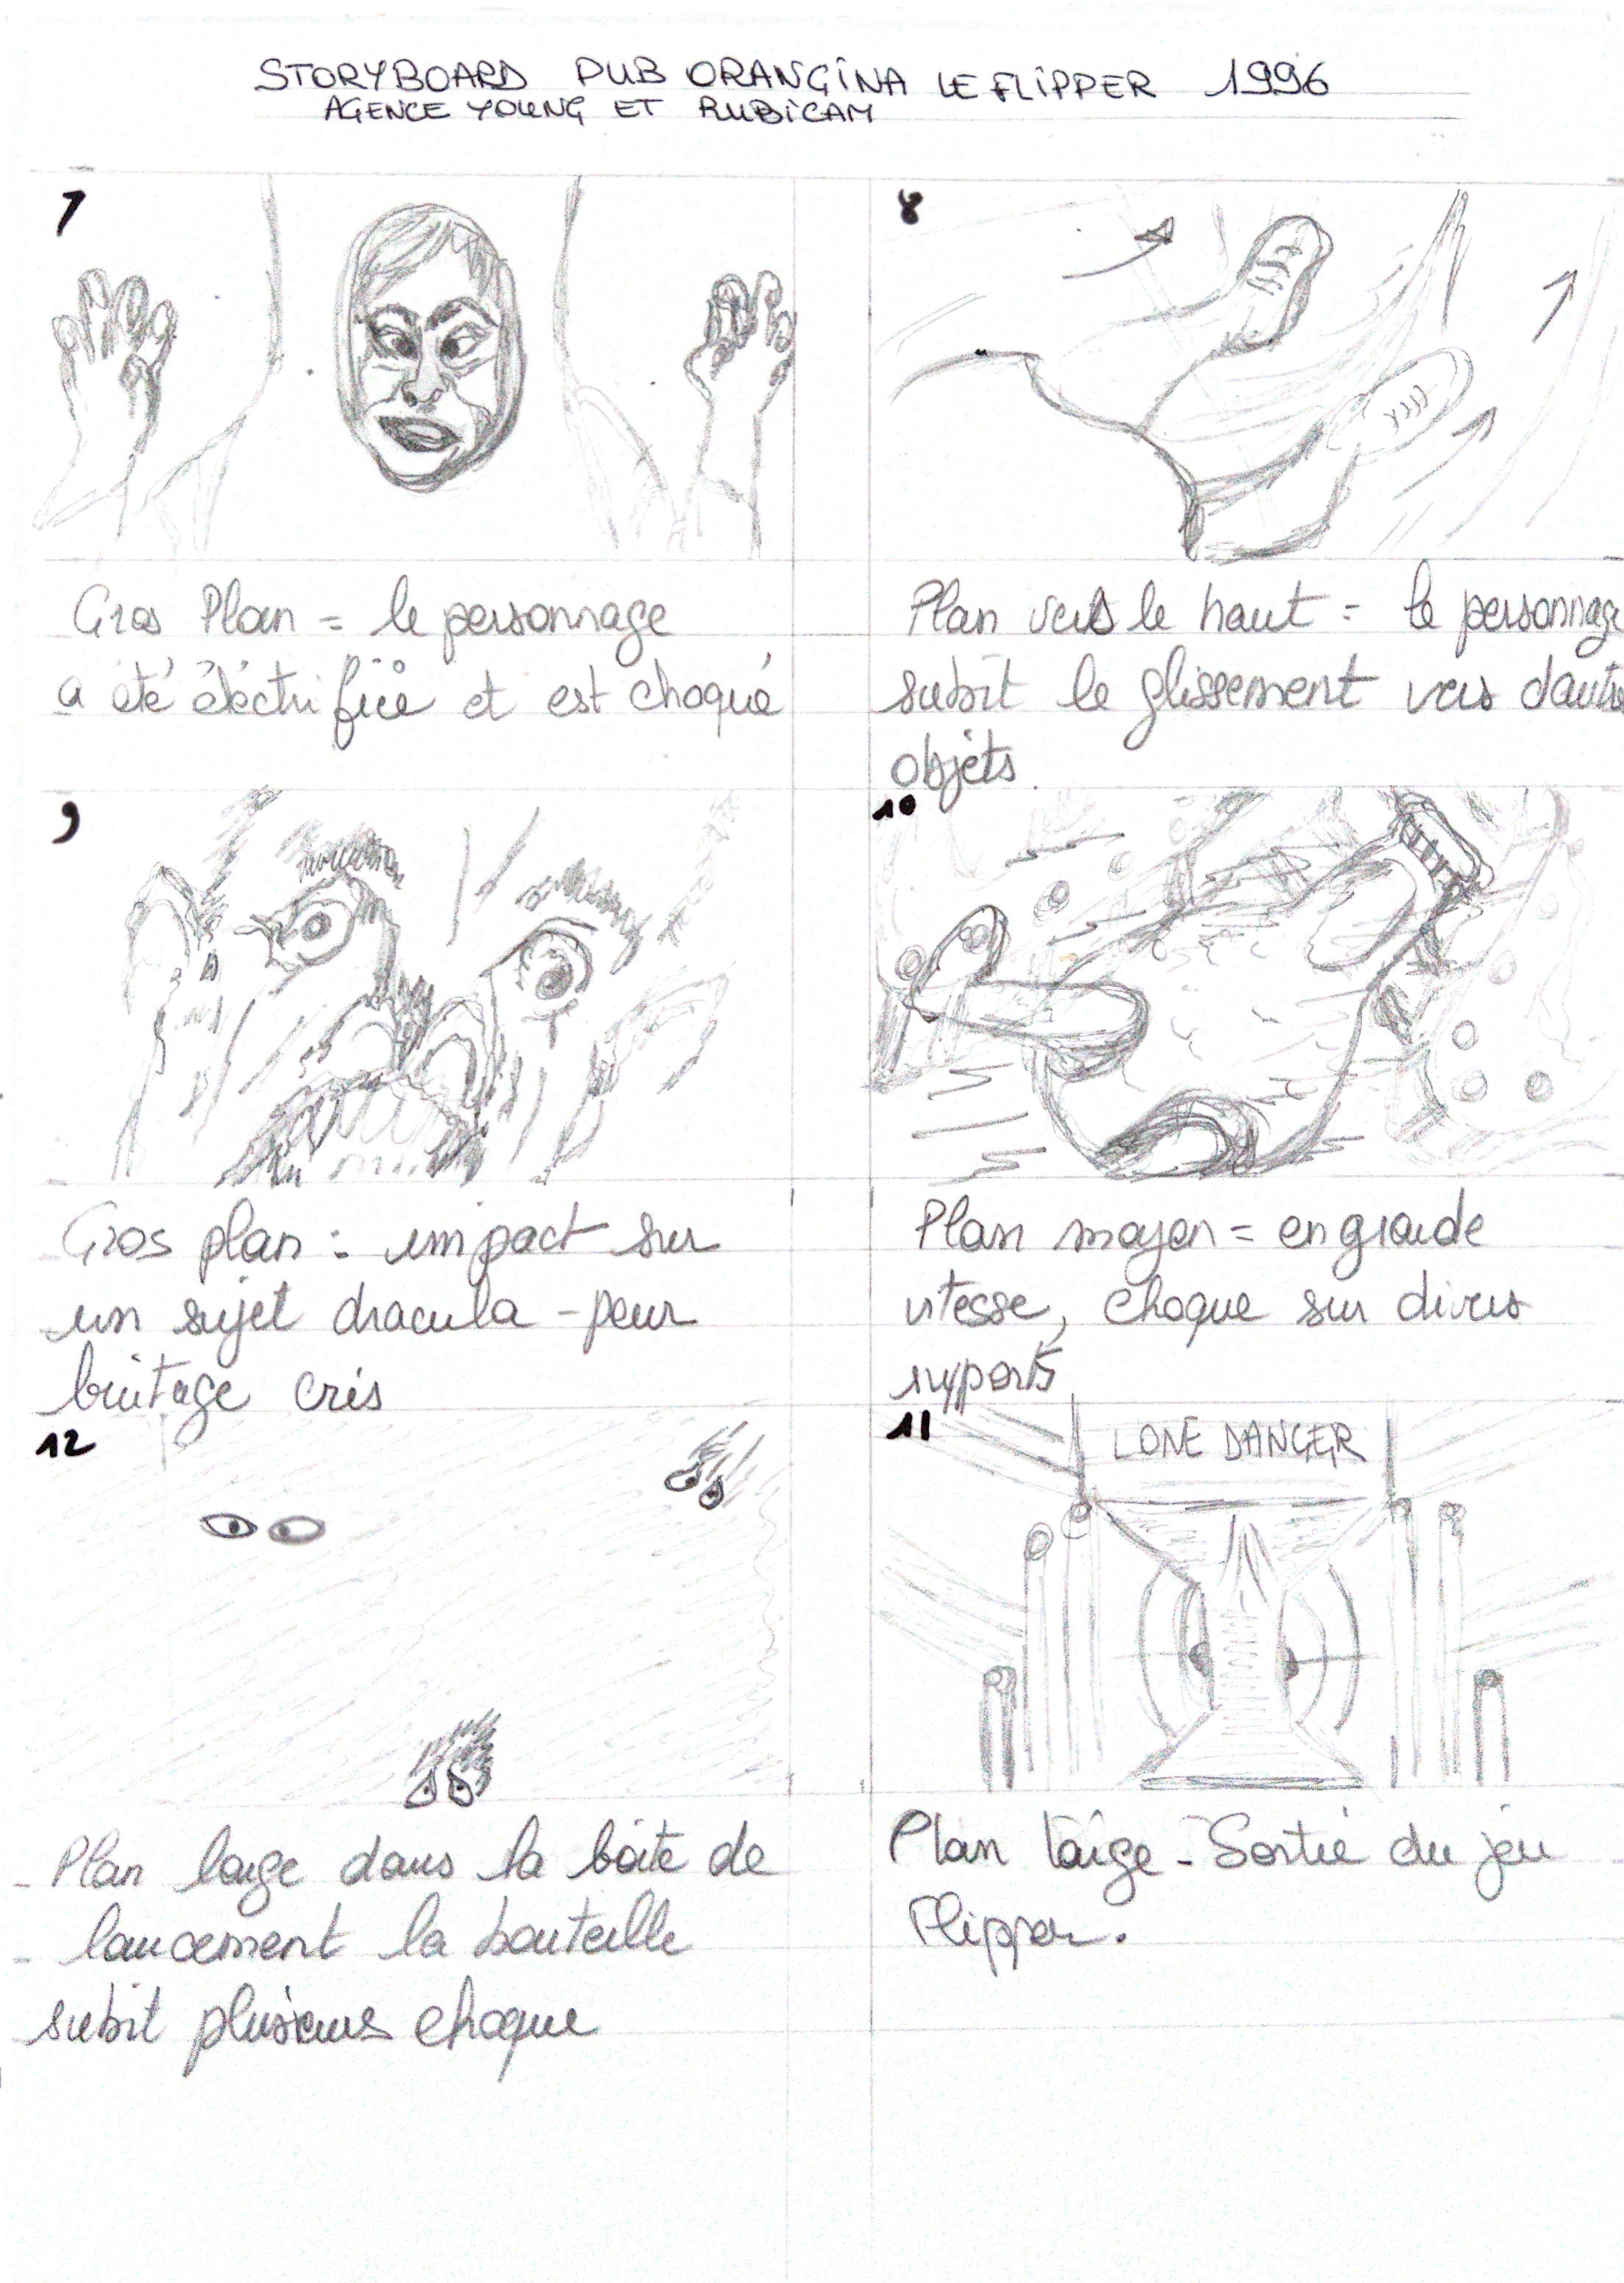 STORYBOARD PUB ORANGINA LE FLIPPER 1996
AGENCE YOUNG ET RUBICAM
7
Gros Plan = le personnage
a été éléctrifiée et est choqué
8
Plan vers le haut = le personnage
subit le glissement vers dautres
objets.
9
Gros plan : impact sur
un sujet dracula - peur
bruitage cris
10
Plan moyen = en grande
vitesse, choque sur divers
supports
12
Plan large dans la boite de
lancement la bouteille
subit plusieurs choque
11
LONE DANGER
Plan large - Sortie du jeu
Flipper.